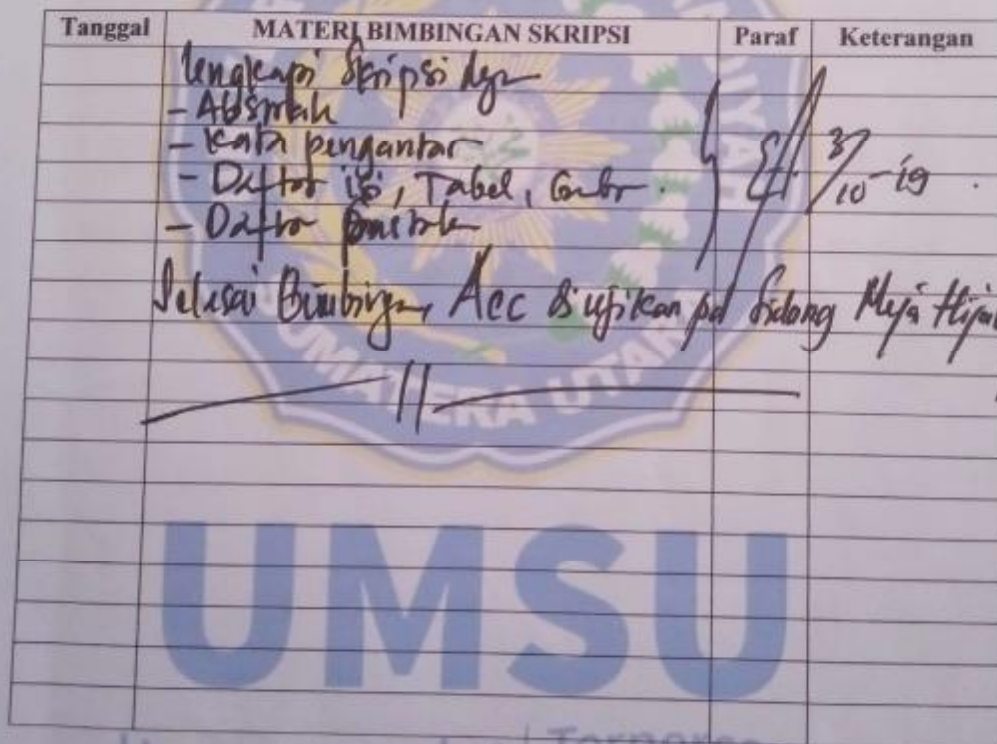 Tanggal MATERI BIMBINGAN SKRIPSI Paraf Keterangan
Lengkapi Skripsi dgn
- Abstrak
- Kata pengantar
- Daftar isi, Tabel, Gambr.
- Daftar Pustaka
10-19
Selesai Bimbingan, Acc diujikan pd Sidang Meja Hijau
UMATERA UTARA
UMSU